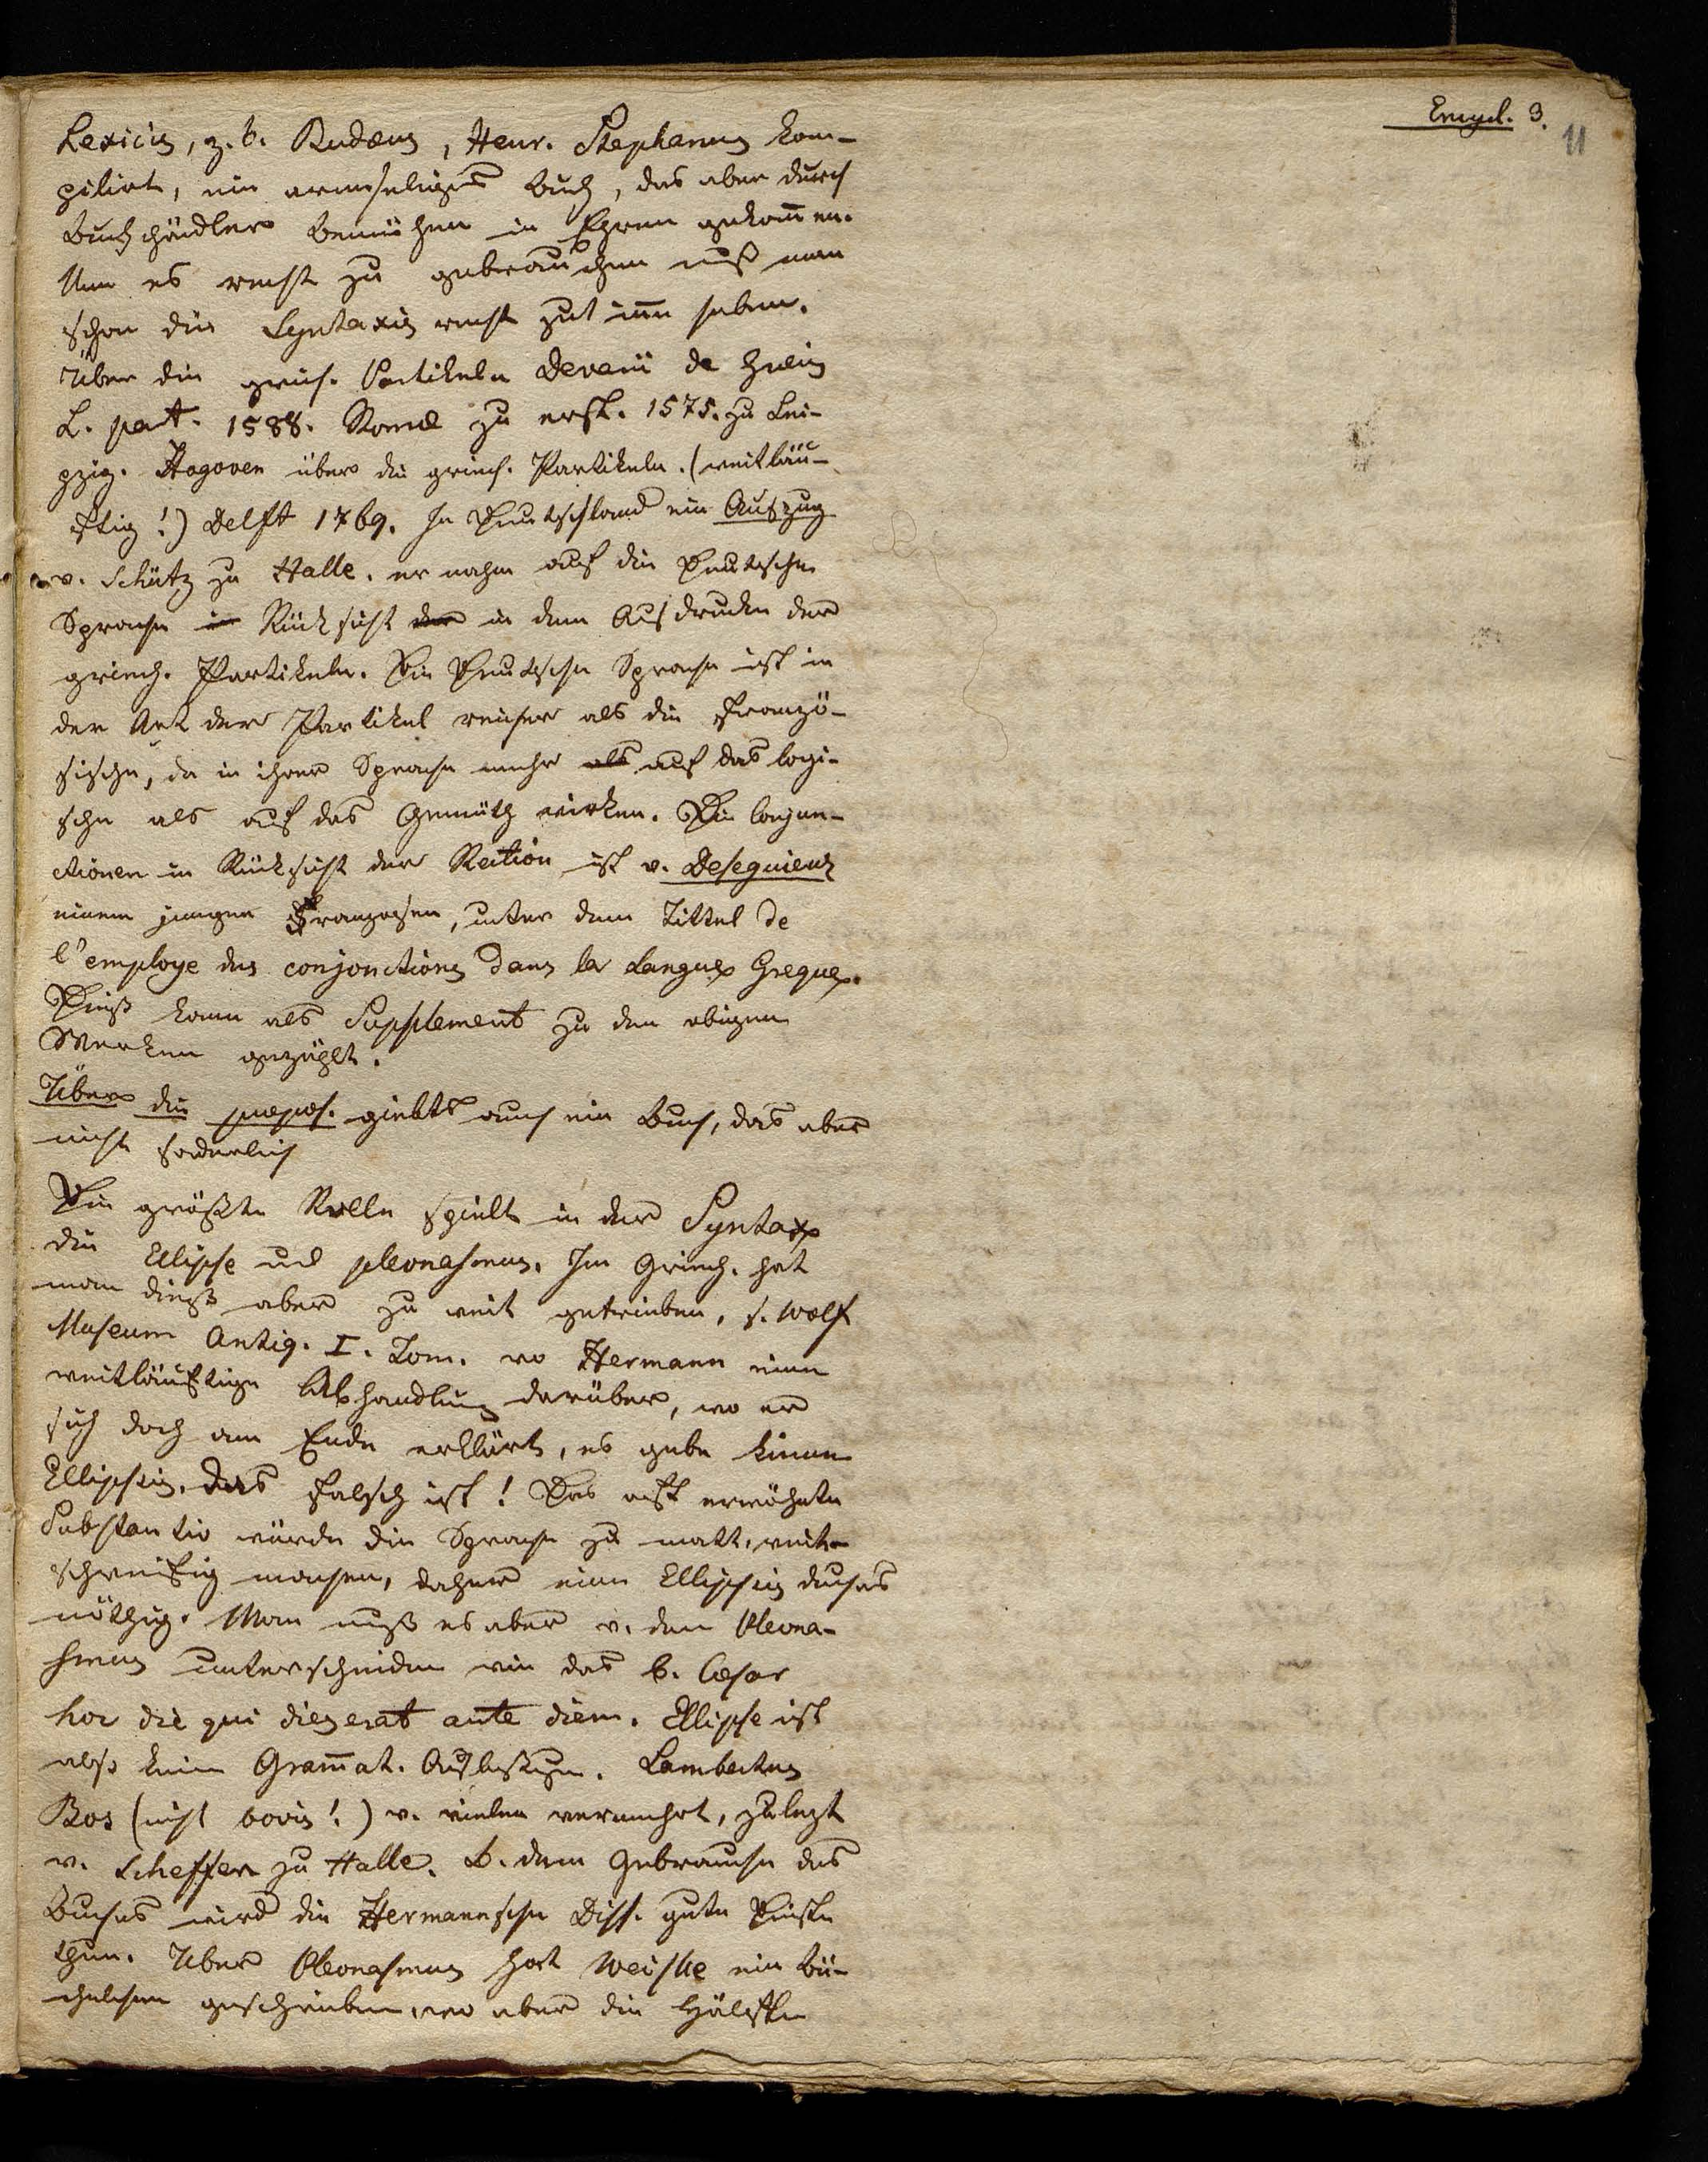 Encycl. 3.
11
Lexicis, z. b. Budæus, Henr. Stephanus kom-
pilirt, ein armseliges Buch, das aber durch
Buchhändler bemühen in Ehren gekom̄en.
Um es recht zu gebrauchen muß man
schon die Syntaxis recht gut im̄e haben.
Über die griech. Partikeln Devarii de Græcis
L. part. 1588. Romæ zu erst. 1575. zu Lei-
pzig. Hogoven über die griech. Partikeln. (weitläu-
ftig!) Delft 1769. In Deutschland ein Auszug
v. Schütz zu Halle. er nahm auf die Deutsche
Sprache in Rücksicht der in dem Ausdrucke der
griech. Partikeln. Die Deutsche Sprache ist in
der Art der Partikel reicher als die Franzö-
sische, da in ihrer Sprache mehr als auf das logi-
sche als auf das Gemüth wirken. Die Conjun-
ctionen in Rücksicht der Rection ist v. Desequienz
einem jungen Franzosen, unter dem Tittel de
l'employe des conjonctions dans la Langue Greque.
Dieß kann als Supplement zu den obigen
Werken gezählt.
Über die præpos. giebts auch ein Buch, das aber
nicht forderlich
Die größte Rolle spielt in der Syntax
die Ellipse und pleonasmus. Im Griech. hat
man dieß aber zu weit getrieben, s. Wolf
Museum Antiq. I. Tom. wo Hermann eine
weitläuftige Abhandlung darüber, wo er
sich doch am Ende erklärt, es gebe keine
Ellipsis. das falsch ist! Das oft erwähnte
Substantiv würde die Sprache zu matt, weit-
schweifig machen, daher eine Ellipsis durchas
nöthig. Man muß es aber v. dem Pleona-
smus unterscheiden wie das b. Cæsar
hoc die qui dies erat ante diem. Ellipse ist
also keine Gram̄at. Auslassung. Lambertus
Bos (nicht bovis!) v. vielen vermehrt, zulezt
v. Scheffer zu Halle. B. dem Gebrauche des
Buches wird die Hermannsche Diss. gute Dienste
thun. Über Pleonasmus hat Weiske ein Bü-
chelchen geschrieben, wo aber die Hälfte